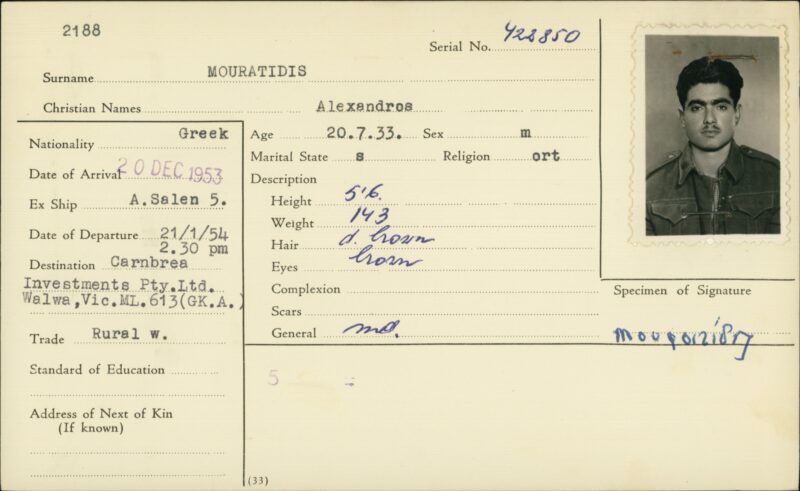 2188
Serial No. 422850
Surname MOURATIDIS
Christian Names Alexandros
Nationality Greek
Date of Arrival 20 DEC 1953
Ex Ship A.Salen 5.
Date of Departure 21/1/54
2.30 pm
Destination Carnbrea
Investments Pty.Ltd.
Walwa,Vic.ML.613(GK.A.)
Trade Rural w.
Standard of Education
Address of Next of Kin
(If known)
Age 20.7.33. Sex m
Marital State s Religion ort
Description
Height 5'6.
Weight 143
Hair d. brown
Eyes brown
Complexion
Scars
General md.
Specimen of Signature
5
(33)